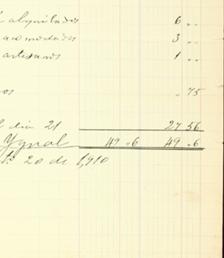 l alquilados 6 "
acomodados 3 "
artesanos 1 "
os " 75
l dia 21 27 56
Ygual 49 " 6 49 " 6
20 de 1,910